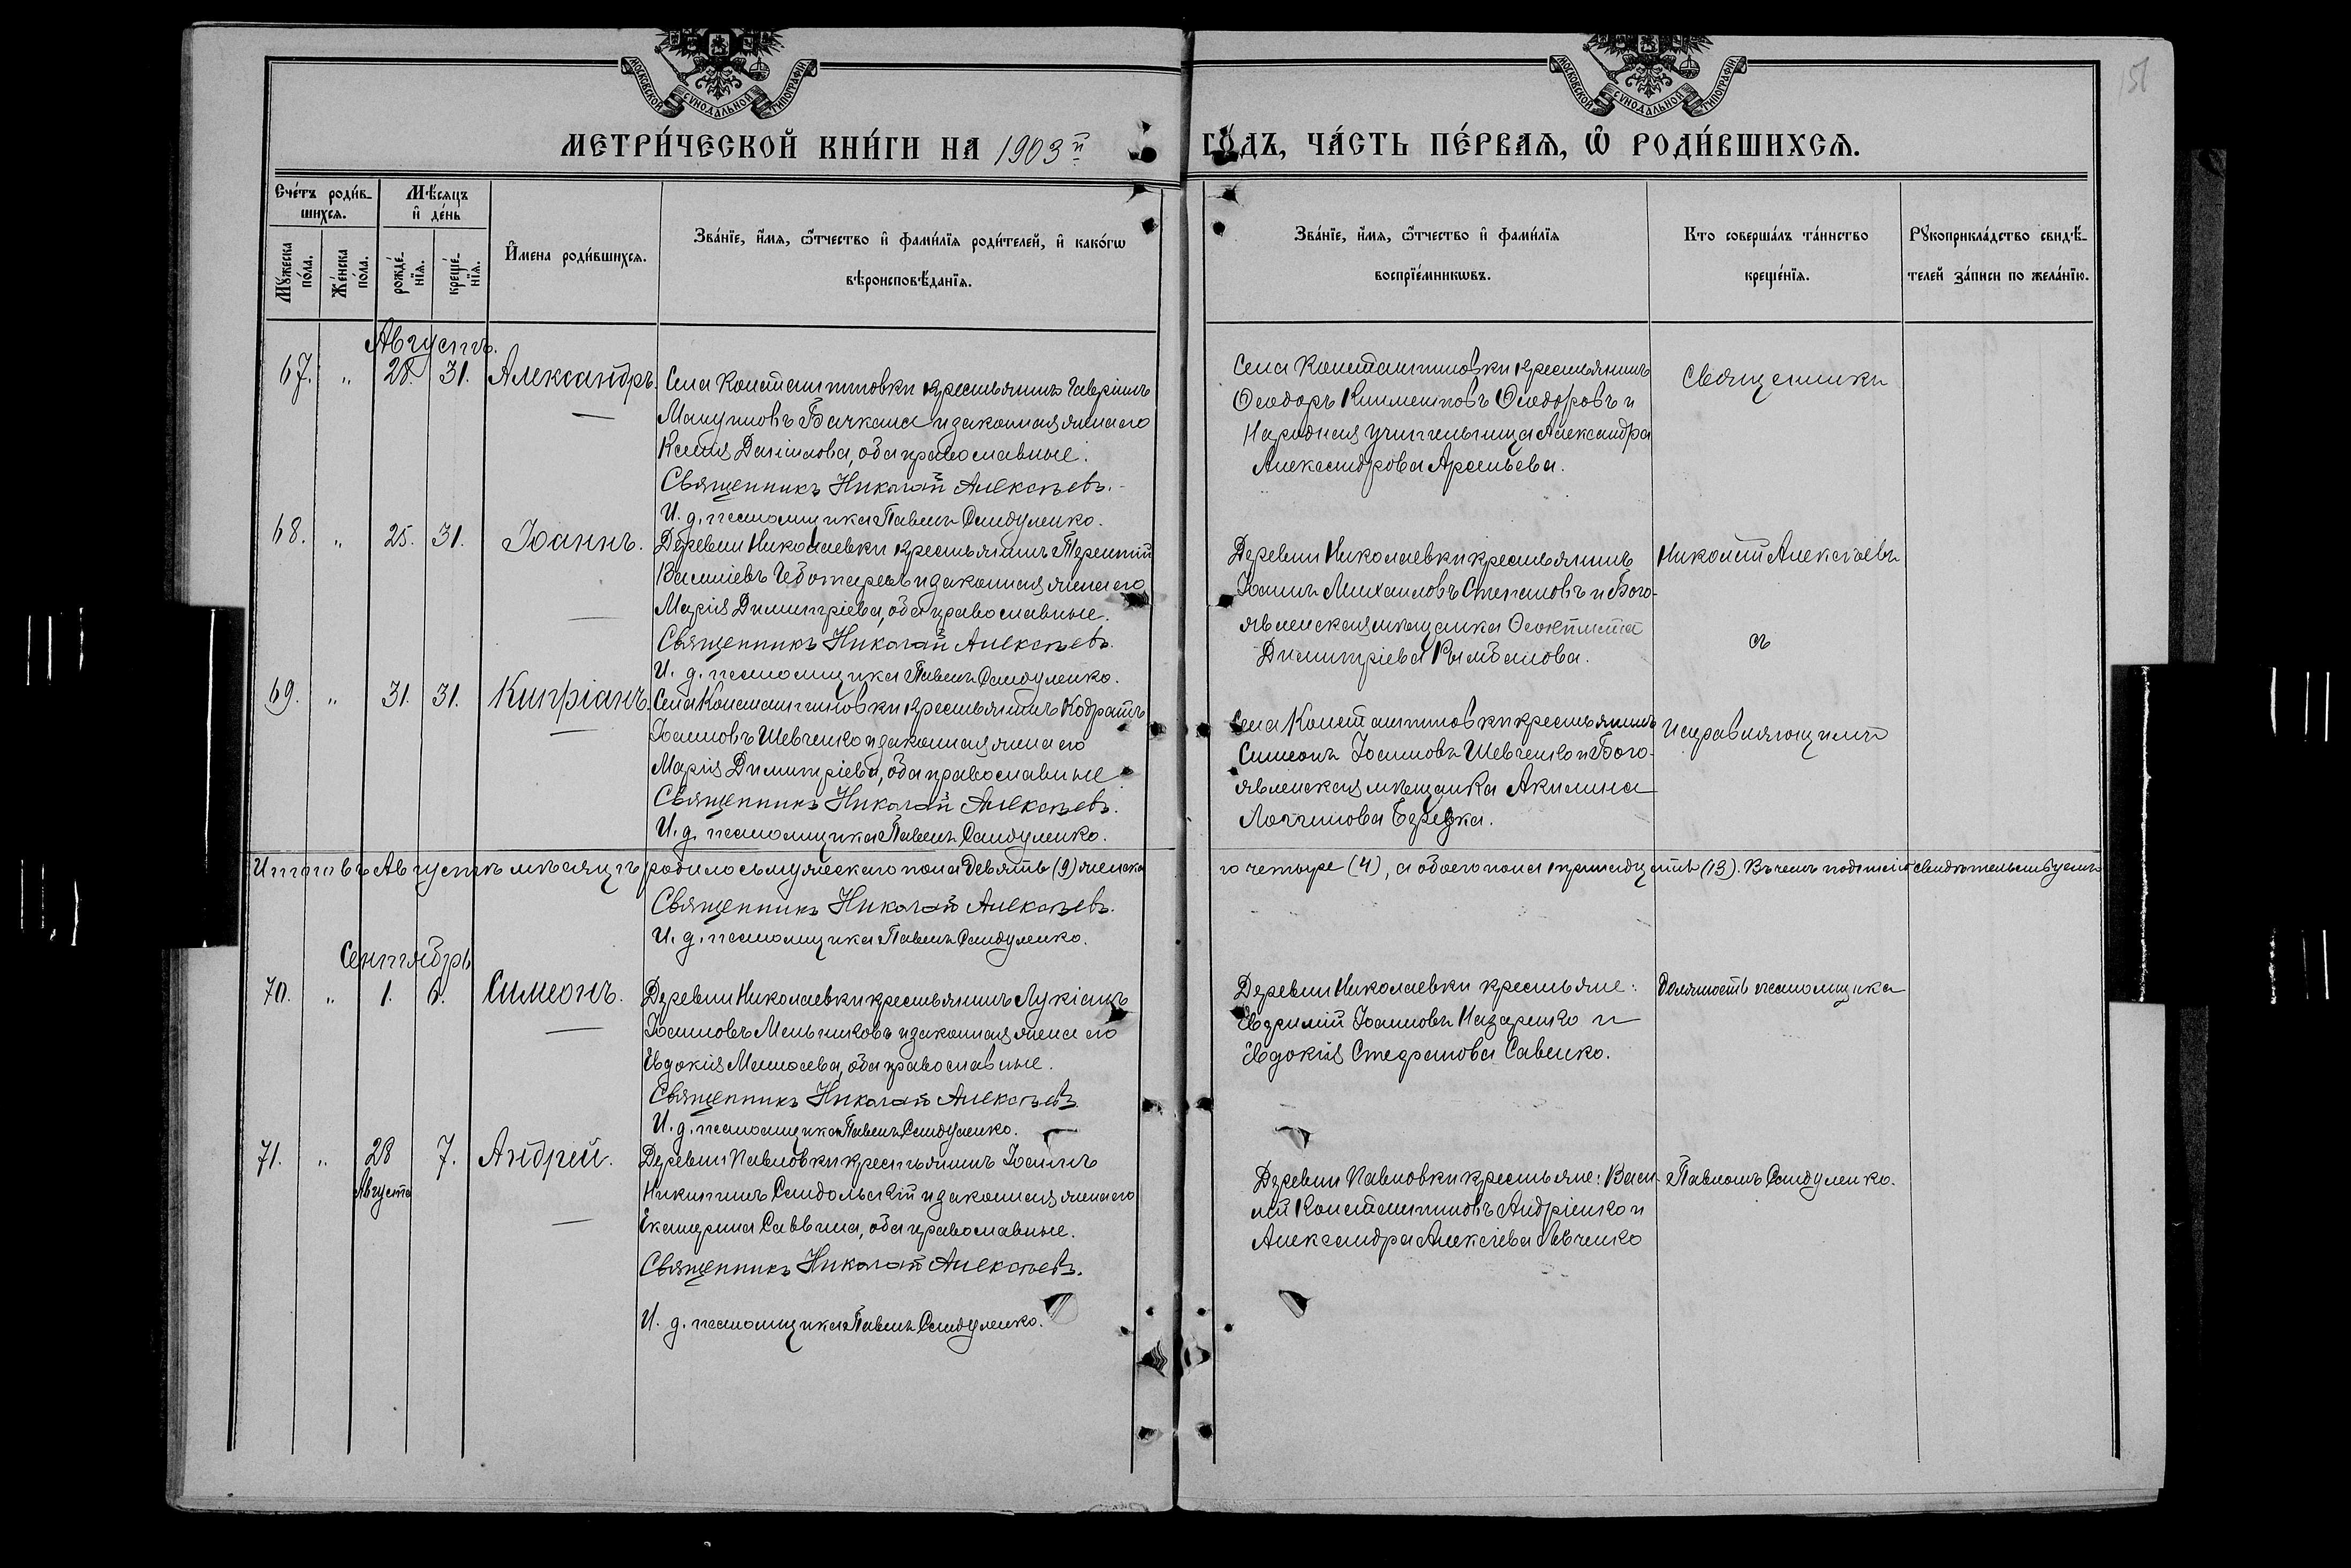 МОСКОВСКОЙ СѴНОДАЛЬНОЙ ТИПОГРАФІИ
МОСКОВСКОЙ СѴНОДАЛЬНОЙ ТИПОГРАФІИ
151
МЕТРИ́ЧЕСКОЙ КНИ́ГИ НА 1903й ГО́ДЪ, ЧА́СТЬ ПЕ́РВАЯ, Ѡ РОДИ́ВШИХСЯ.
Сче́тъ роди́в-
шихся.
Мꙋ́жеска по́ла.
Же́нска по́ла.
Мѣ́сяцъ и де́нь
рожде́-нїя.
креще́-нїя.
И́мена роди́вшихся.
Зва́нїе, и́мя, ѻ́тчество и фами́лїя роди́телей, и како́гѡ
вѣроисповѣ́данїя.
Зва́нїе, и́мя, ѻ́тчество и фами́лїя
воспрїе́мникѡвъ.
Кто соверша́лъ та́инство
креще́нїя.
Рꙋкоприкла́дство свидѣ́-
телей за́писи по жела́нїю.
Августъ.
67. " 28. 31. Александръ.
Села Константиновки крестьянинъ Гавріилъ
Мануиловъ Бачкана и законная жена его
Ксенія Даніилова, оба православные.
Священникъ Николай Алексѣевъ.
И. д. псаломщика Павелъ Сандуленко.
Села Константиновки крестьянинъ
Ѳеодоръ Климентовъ Ѳеодоровъ и
Народная учительница Александра
Александрова Арсеньева.
Священники
68. " 25. 31. Іоаннъ.
Деревни Николаевки крестьянинъ Терентій
Василіевъ Чеботаревъ и законная жена его
Марія Димитріева, оба православные.
Священникъ Николай Алексѣевъ.
И. д. псаломщика Павелъ Сандуленко.
Деревни Николаевки крестьянинъ
Іоаннъ Михаиловъ Степановъ и Бого-
явленская мѣщанка Ѳеоктиста
Димитріева
Николай Алексѣевъ
съ
69. " 31. 31. Кипріанъ.
Села Константиновки крестьянинъ Кодратъ
Іоанновъ Шевченко и законная жена его
Марія Димитріева, оба православные
Священникъ Николай Алексѣевъ.
И. д. псаломщика Павелъ Сандуленко.
Села Константиновки крестьянинъ
Симеонъ Іоанновъ Шевченко и Бого-
явленская мѣщанка Акилина
Логгинова
исправляющимъ
Итого въ Августѣ мѣсяцѣ родилось мужескаго пола девять (9) женска
го четыре (4), а обоего пола тринадцать (13). Въ чемъ подписью свидѣтельствуемъ
Священникъ Николай Алексѣевъ.
И. д. псаломщика Павелъ Сандуленко.
Сентябрь
70. " 1. 6. Симеонъ.
Деревни Николаевки крестьянинъ Лукіанъ
Іоанновъ Мельниковъ и законная жена его
Евдокія Моисеева, оба православные.
Священникъ Николай Алексѣевъ
И. д. псаломщика Павелъ Сандуленко.
Деревни Николаевки крестьяне:
Евѳимій Іоанновъ Назаренко и
Евдокія Стефанова Савенко.
должность псаломщика
71. " 28 Августа 7. Андрей.
Деревни Павловки крестьянинъ Іоаннъ
Никитинъ Сандольскій и законная жена его
Екатерина Саввина, оба православные.
Священникъ Николай Алексѣевъ.
И. д. псаломщика Павелъ Сандуленко.
Деревни Павловки крестьяне: Васи-
лій Константиновъ Андріенко и
Александра Алексіева Левченко
Павломъ Сандуленко.